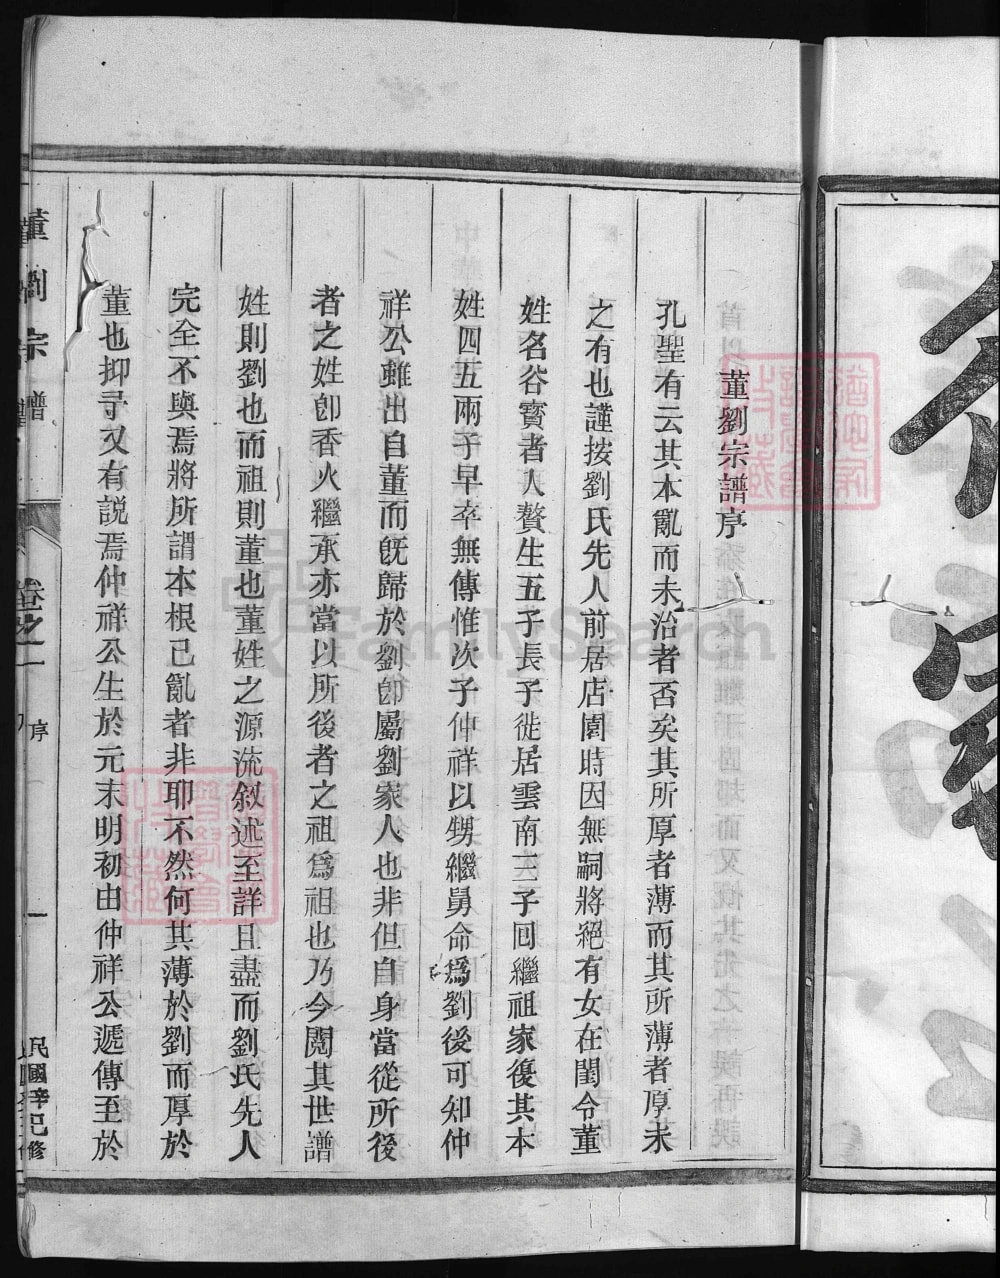 董劉宗譜序
孔聖有云其本亂而末治者否矣其所厚者薄而其所薄者厚未
之有也謹按劉氏先人前居店園時因無嗣將絕有女在閨令董
姓名谷寳者入贅生五子長子徙居雲南三子回繼祖家復其本
姓四五兩子早卒無傳惟次子仲祥以甥繼舅命爲劉後可知仲
祥公雖出自董而旣歸於劉卽屬劉家人也非但自身當從所後
者之姓卽香火繼承亦當以所後者之祖爲祖也乃今閱其世譜
姓則劉也而祖則董也董姓之源流叙述至詳且盡而劉氏先人
完全不與焉將所謂本根己亂者非耶不然何其薄於劉而厚於
董也抑予又有説焉仲祥公生於元末明初由仲祥公遞傳至於
董劉宗譜
卷之一
序
一
民國辛巳修
FamilySearch